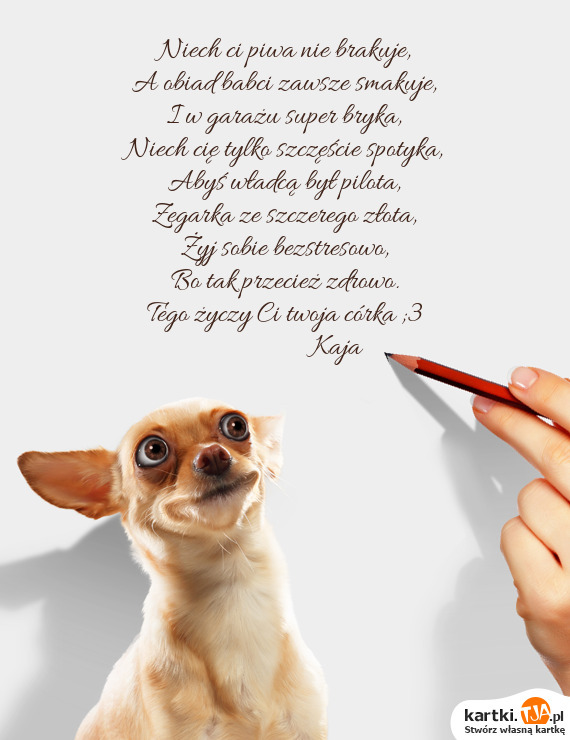 Niech ci piwa nie brakuje,
A obiad babci zawsze smakuje,
I w garażu super bryka,
Niech cię tylko szczęście spotyka,
Abyś władcą był pilota,
Zegarka ze szczerego złota,
Żyj sobie bezstresowo,
Bo tak przecież zdrowo.
Tego życzy Ci twoja córka ;3
Kaja
kartki.TJA.pl
Stwórz własną kartkę